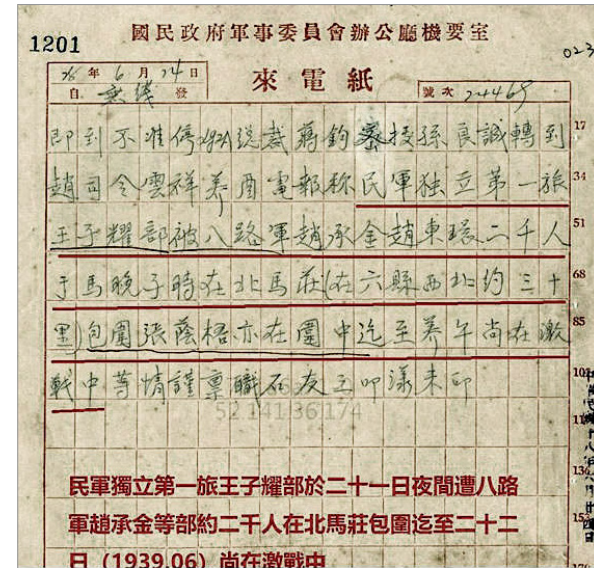 國民政府軍事委員會辦公廳機要室
1201
023
28年6月24日
來電紙
自 無线 發
號次 24469
即到不准停 總裁蔣鈞密授孫良誠轉到
17
趙司令雲祥养酉電報称民軍独立第一旅
34
王子耀部被八路軍趙承金趙東環二千人
51
于馬晚子時在北馬莊(在六縣西北約三十
68
里)包圍張蔭梧亦在圍中迄至养午尚在激
85
戰中等情謹禀職石友三叩漾未印
102
52 141 36 174
民軍獨立第一旅王子耀部於二十一日夜間遭八路
軍趙承金等部約二千人在北馬莊包圍迄至二十二
日（1939.06）尚在激戰中